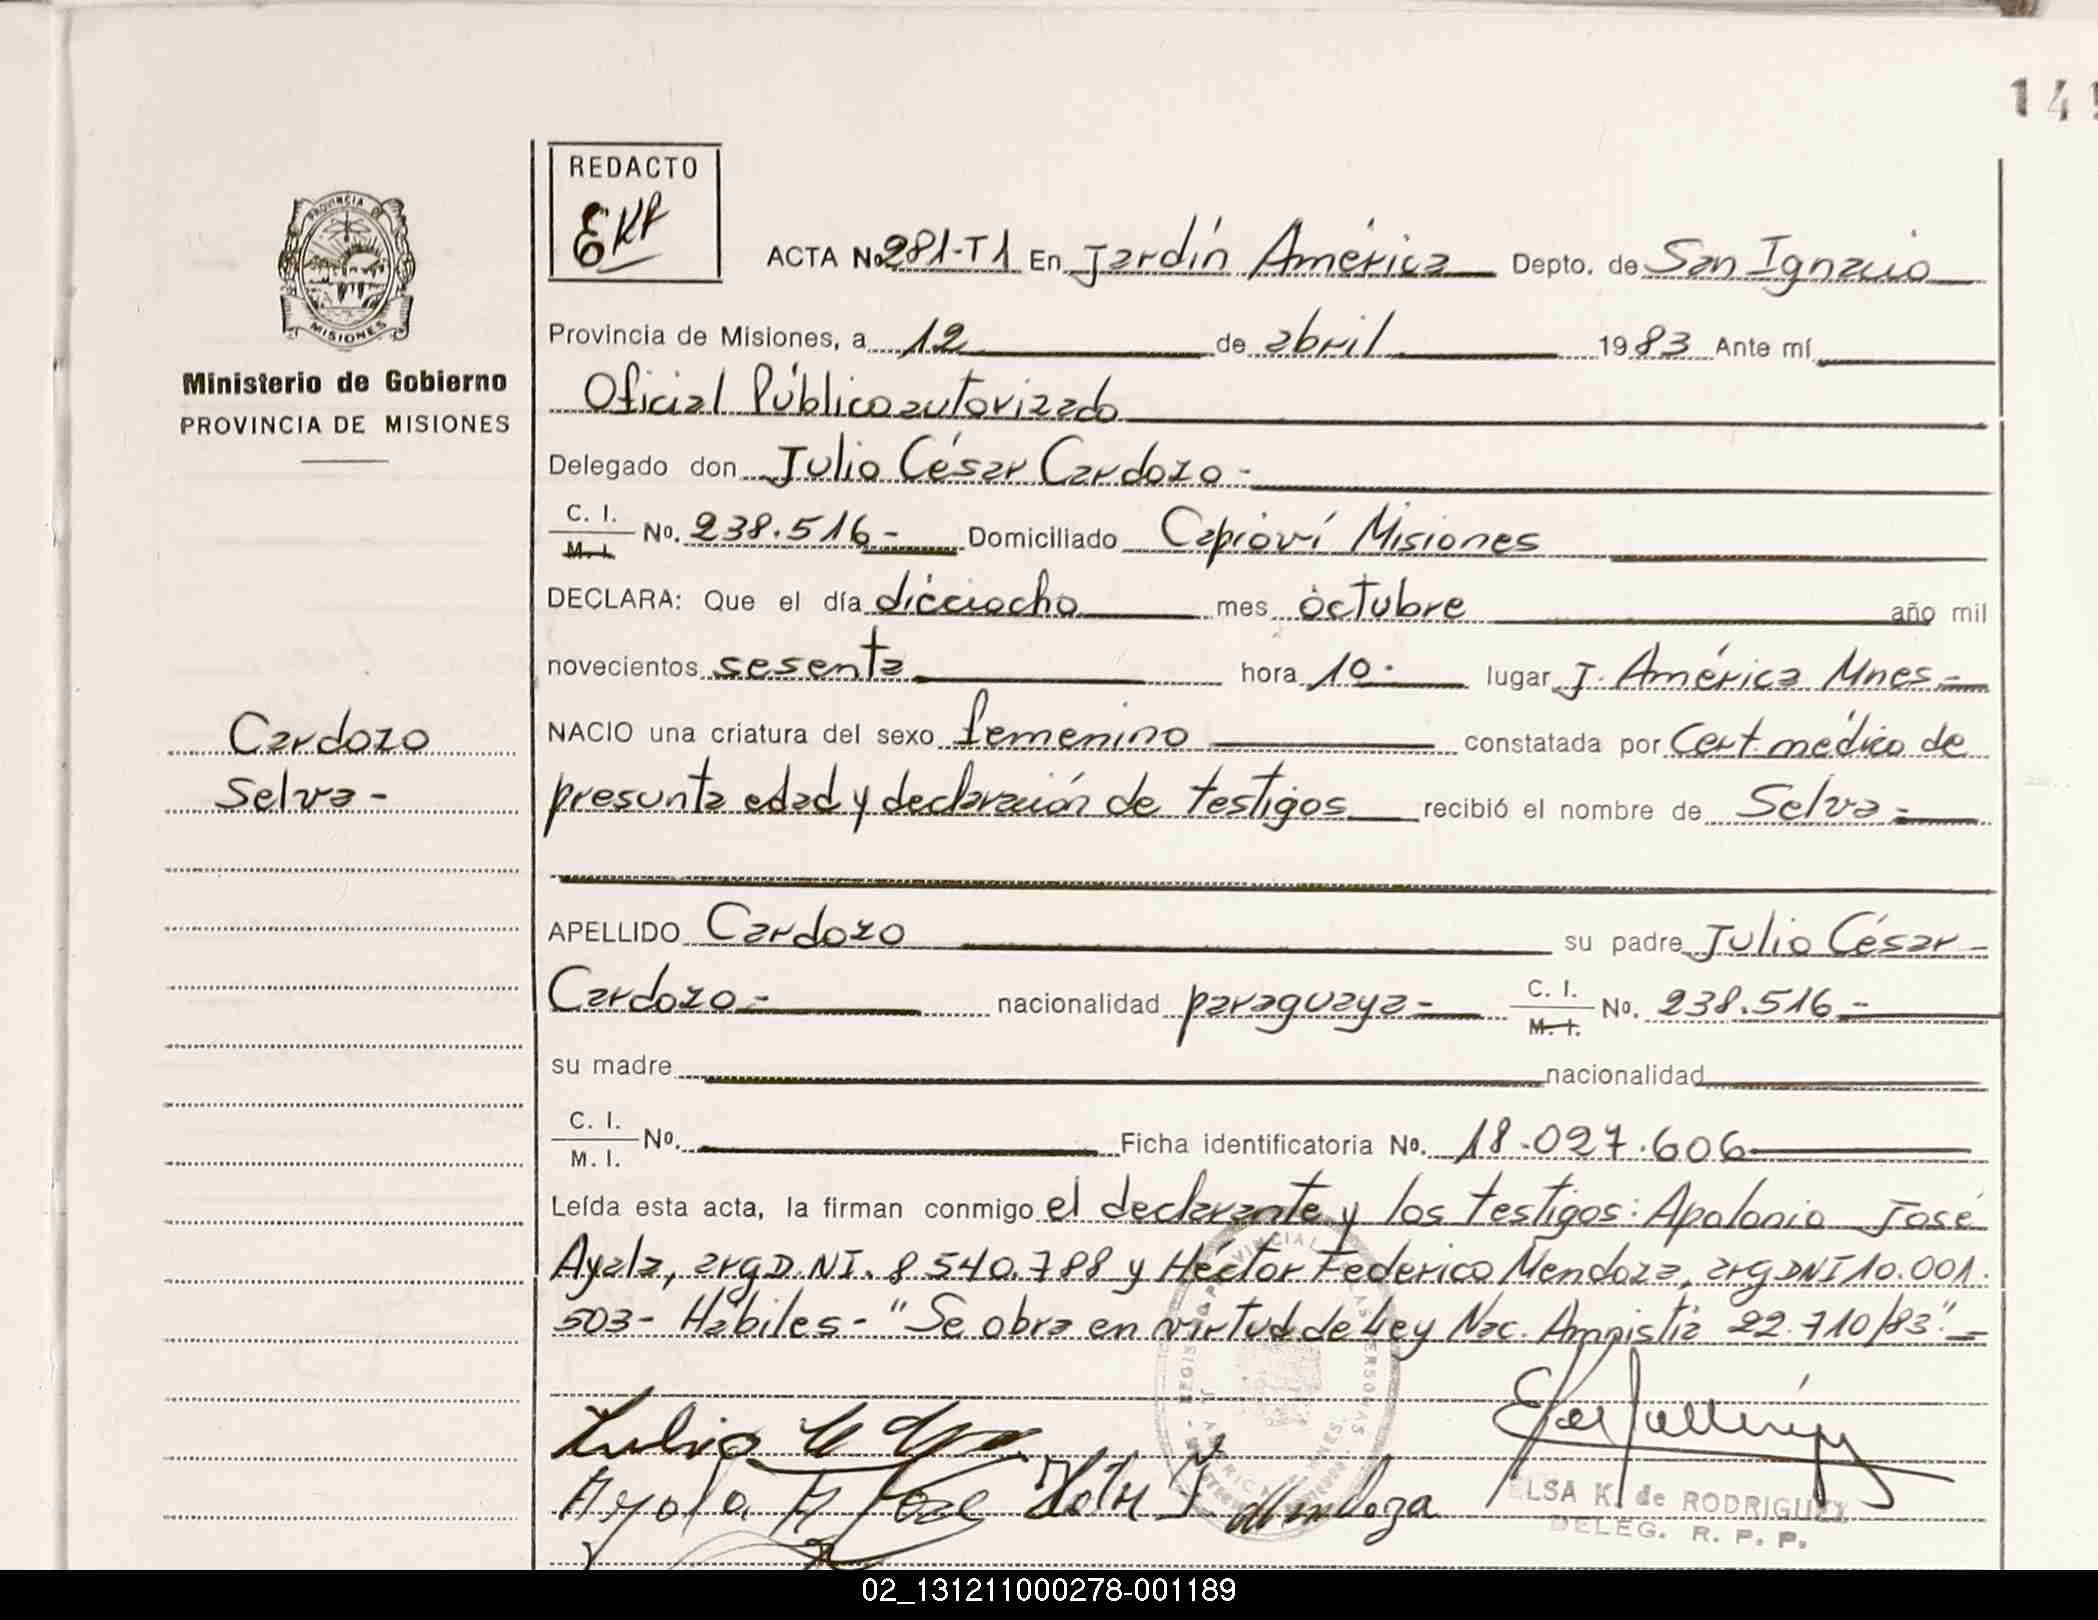 14
REDACTO
EKR
PROVINCIA DE
MISIONES
Ministerio de Gobierno
PROVINCIA DE MISIONES
Cardozo
Selva-
ACTA No. 281-T1 En Jardín América Depto. de San Ignacio
Provincia de Misiones, a 12 de abril 1983 Ante mí
Oficial Público autorizado
Delegado don Julio César Cardozo-
C. I.
M. I. No. 238.516- Domiciliado Capioví Misiones
DECLARA: Que el día dieciocho mes octubre año mil
novecientos sesenta hora 10- lugar J. América Mnes-
NACIO una criatura del sexo femenino constatada por Cert. médico de
presunta edad y declaración de testigos recibió el nombre de Selva-
APELLIDO Cardozo su padre Julio César
Cardozo- nacionalidad paraguaya- C. I.
M. I. No. 238.516-
su madre nacionalidad
C. I.
M. I. No. Ficha identificatoria No. 18.027.606
Leída esta acta, la firman conmigo el declarante y los testigos: Apolonio José
Ayala, arg D.NI. 8 540.788 y Héctor Federico Mendoza, arg DNI 10.001.
503- Hábiles- "Se obra en virtud de Ley Nac. Amnistía 22.710/83"-
Julio
Ayala Jose Mendoza
ELSA K. de RODRIGUEZ
DELEG. R. P. P.
02_131211000278-001189